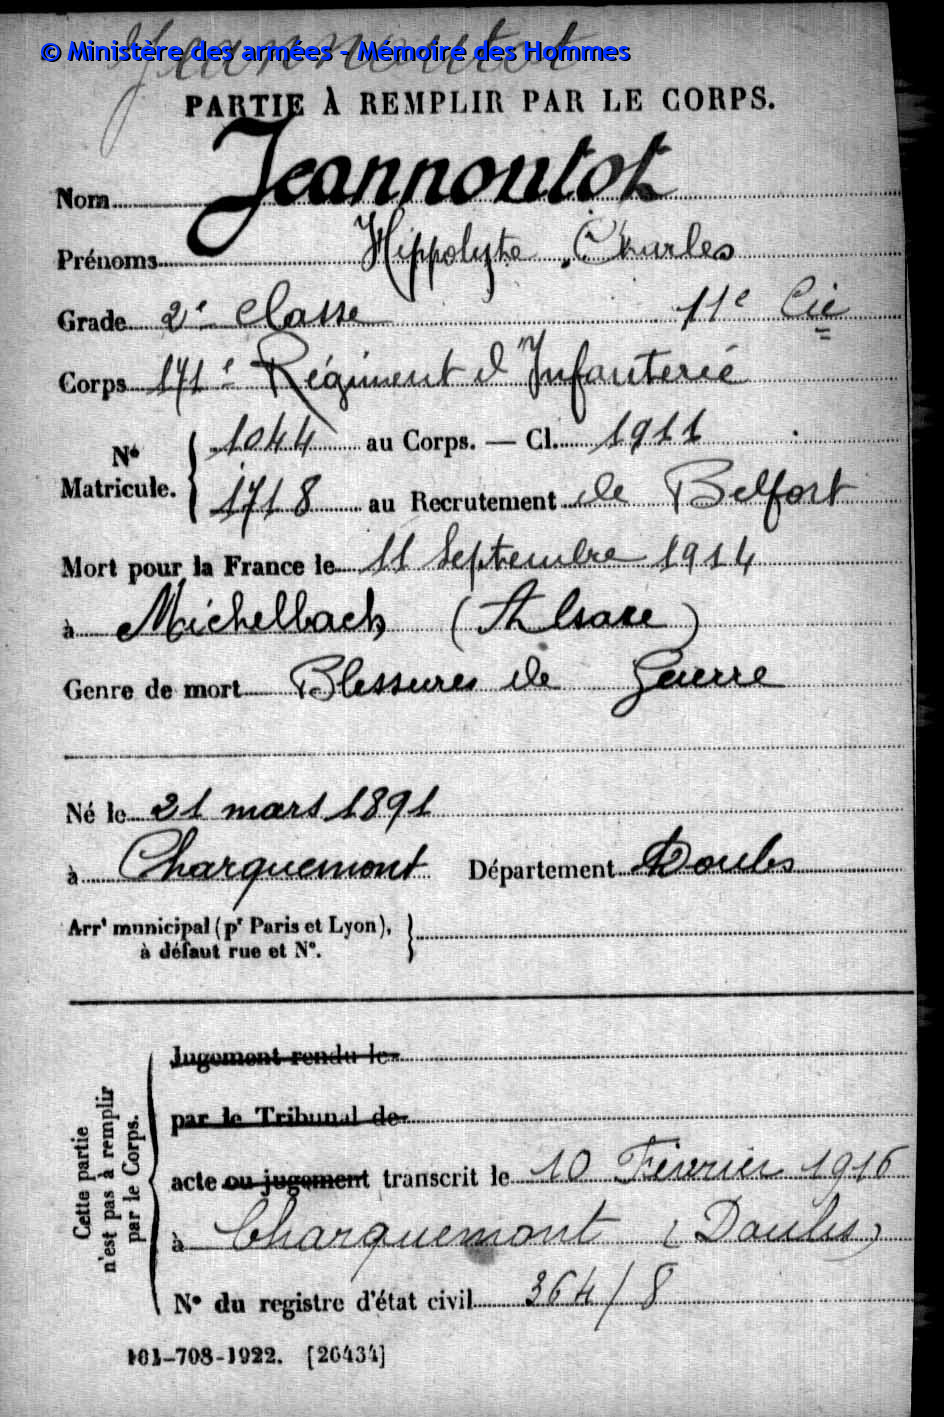 Jeannoutot
© Ministère des armées - Mémoire des Hommes
PARTIE À REMPLIR PAR LE CORPS.
Nom Jeannoutot
Prénoms Hippolyte Charles
Grade 2e classe 11e Cie
Corps 171e Régiment d'Infanterie
No Matricule. { 1044 au Corps. — Cl. 1911
1718 au Recrutement de Belfort
Mort pour la France le 11 Septembre 1914
à Michelbach (Alsace)
Genre de mort Blessures de Guerre
Né le 21 mars 1891
à Charquemont Département Doubs
Arrt municipal (pr Paris et Lyon),
à défaut rue et No.
Cette partie
n'est pas à remplir
par le Corps.
Jugement rendu le
par le Tribunal de
acte ou jugement transcrit le 10 Février 1916
à Charquemont (Doubs)
No du registre d'état civil 364/8
101-708-1922. [26434]